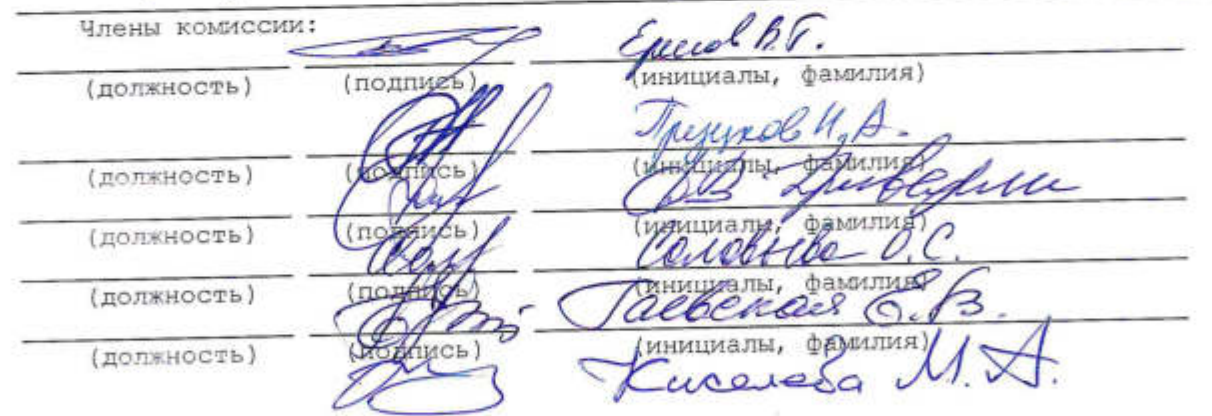 Члены комиссии:
Ершов В.Г.
(должность) (подпись) (инициалы, фамилия)
Н.А.
(должность) (подпись) (инициалы, фамилия)
(должность) (подпись) (инициалы, фамилия)
Соловьева О.С.
(должность) (подпись) (инициалы, фамилия)
Гаевская Е.В.
(должность) (подпись) (инициалы, фамилия)
Киселева М.А.